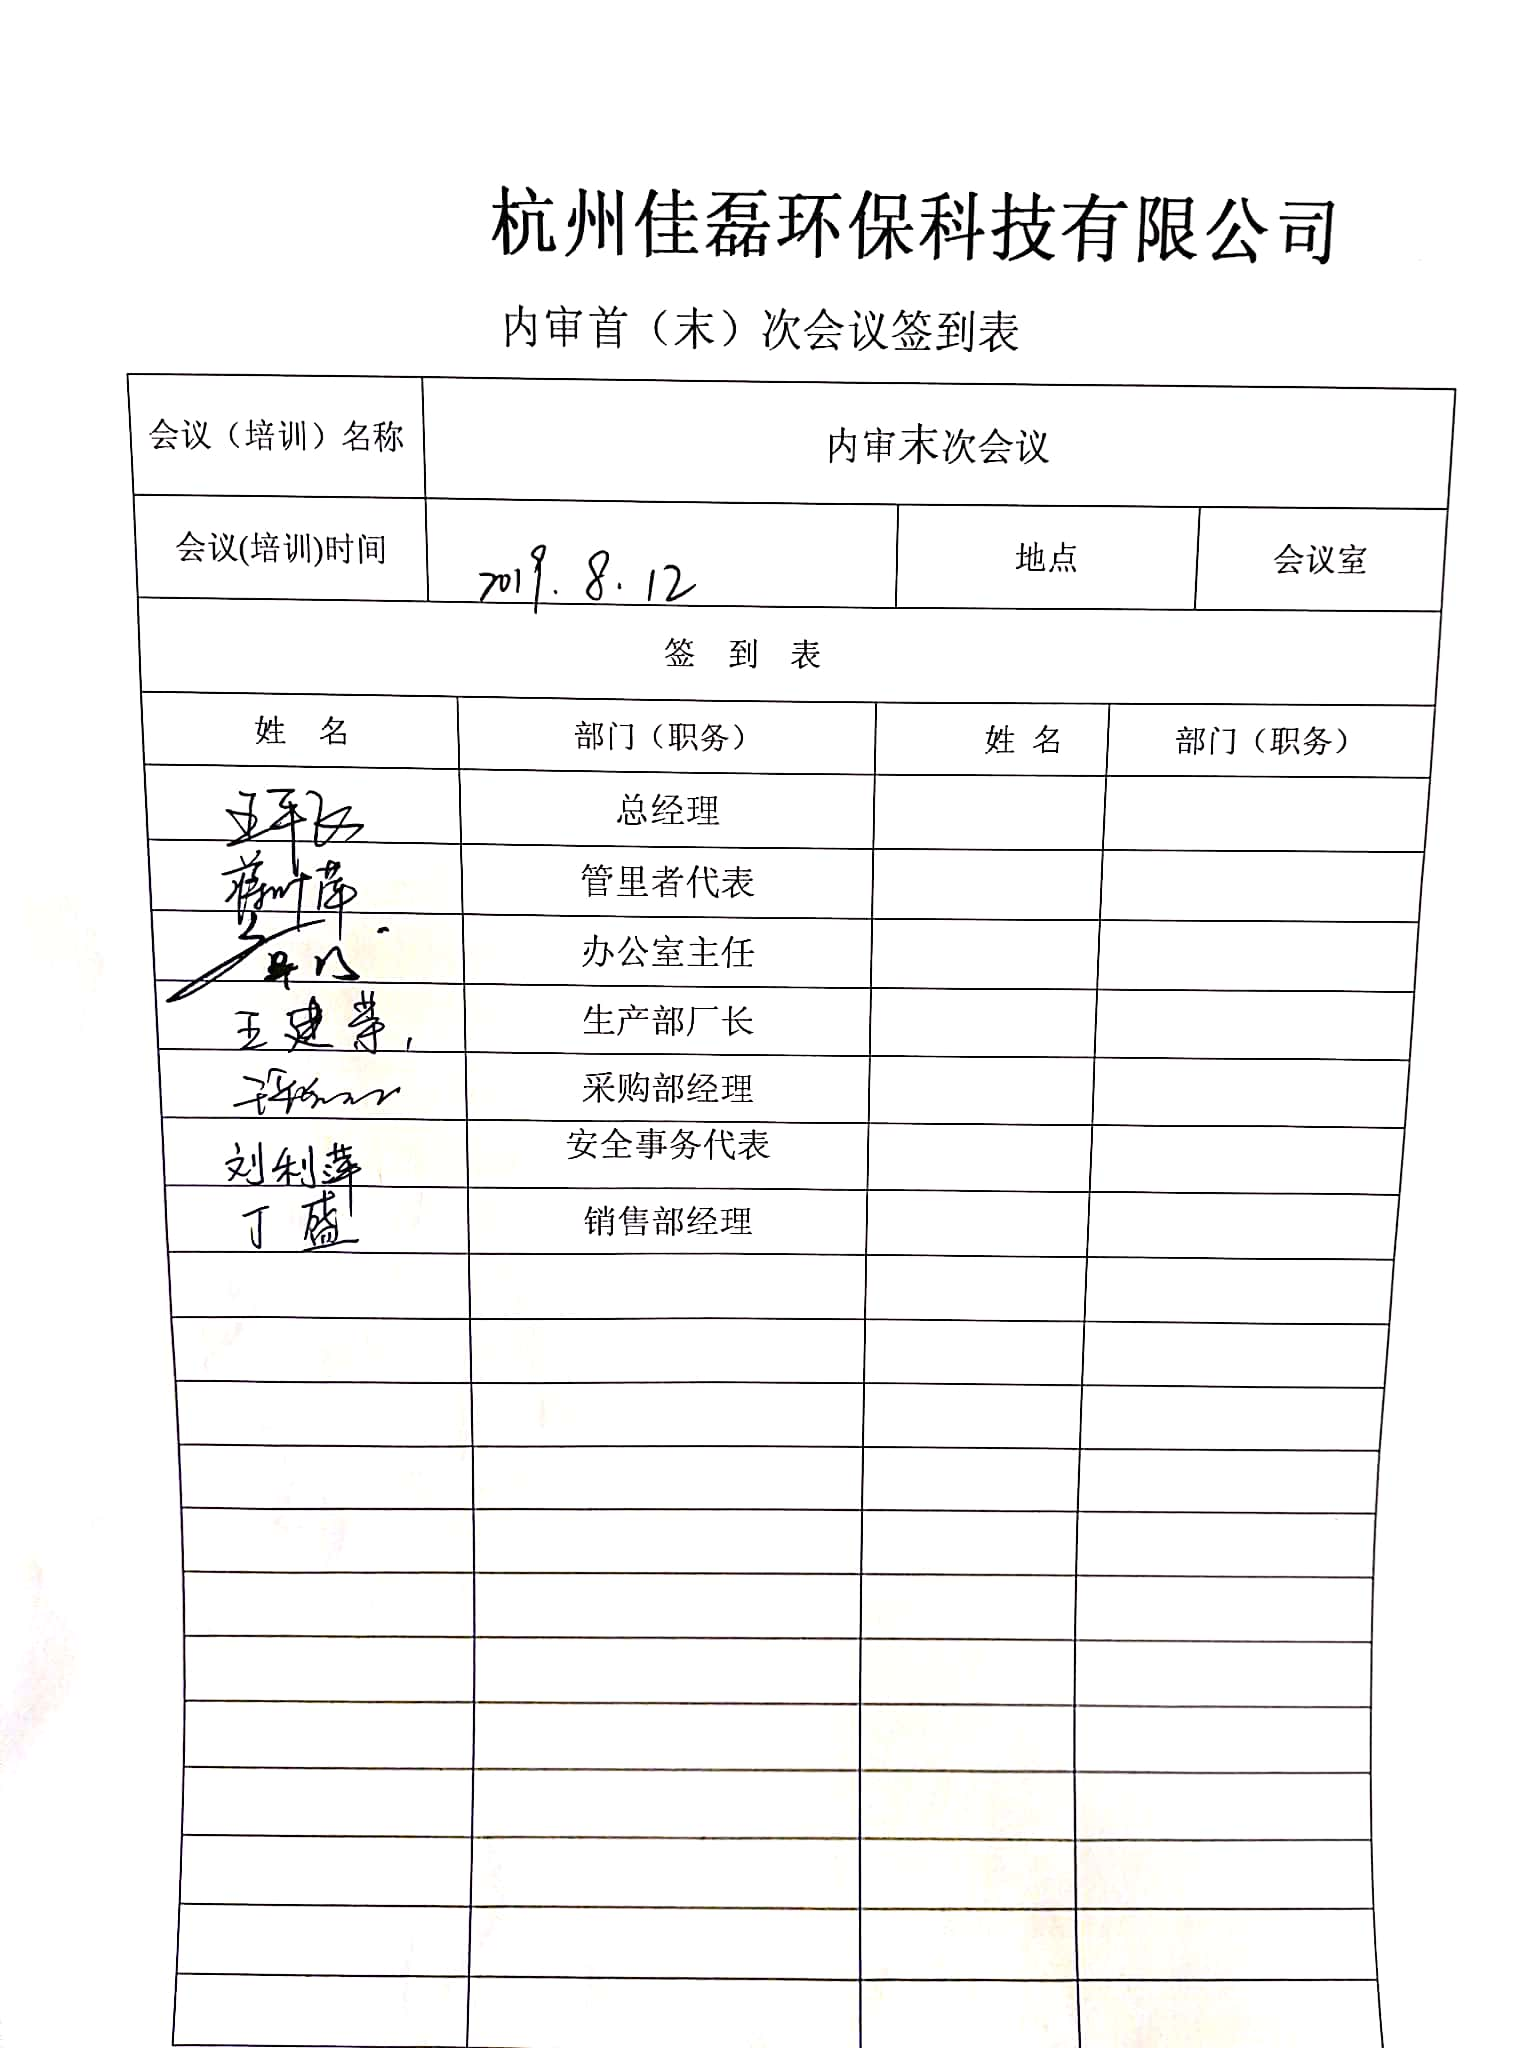 杭州佳磊环保科技有限公司
内审首（末）次会议签到表
会议（培训）名称 内审末次会议
会议(培训)时间 2019.8.12 地点 会议室
签 到 表
姓 名 部门（职务） 姓 名 部门（职务）
总经理
管里者代表
办公室主任
王建荣 生产部厂长
采购部经理
刘利萍 安全事务代表
丁盛 销售部经理